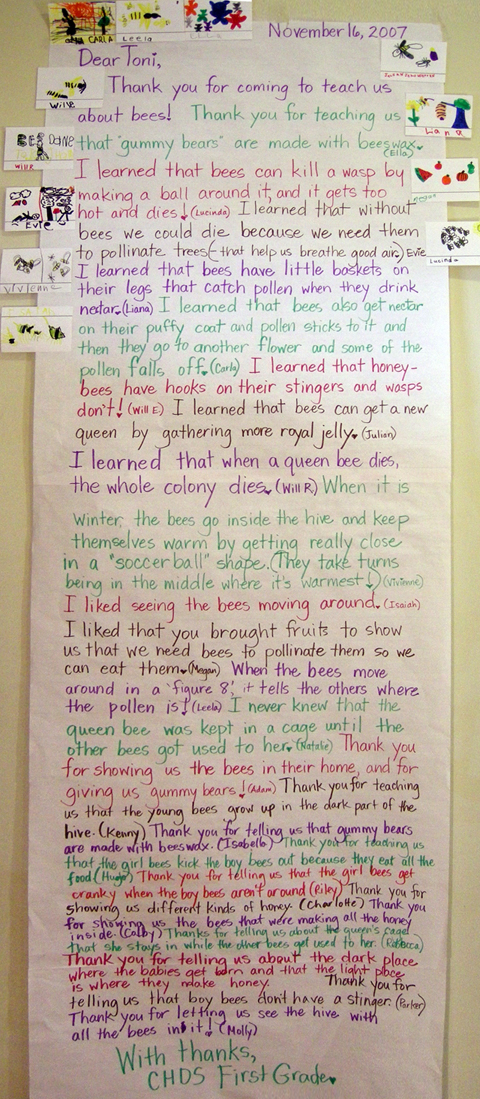 CARLA
Leela
November 16, 2007
Dear Toni,
Thank you for coming to teach us
about bees! Thank you for teaching us
that "gummy bears" are made with beeswax.
(Ella)
I learned that bees can kill a wasp by
making a ball around it, and it gets too
hot and dies! (Lucinda) I learned that without
bees we could die because we need them
to pollinate trees (that help us breathe good air.) Evie
I learned that bees have little baskets on
their legs that catch pollen when they drink
nectar. (Liana) I learned that bees also get nectar
on their puffy coat and pollen sticks to it and
then they go to another flower and some of the
pollen falls off. (Carla) I learned that honey-
bees have hooks on their stingers and wasps
don't! (Will E) I learned that bees can get a new
queen by gathering more royal jelly. (Julian)
I learned that when a queen bee dies,
the whole colony dies. (Will R) When it is
winter, the bees go inside the hive and keep
themselves warm by getting really close
in a "soccer ball" shape. (They take turns
being in the middle where it's warmest!) (Vivienne)
I liked seeing the bees moving around. (Isaiah)
I liked that you brought fruits to show
us that we need bees to pollinate them so we
can eat them. (Megan) When the bees move
around in a 'figure 8', it tells the others where
the pollen is! (Leela) I never knew that the
queen bee was kept in a cage until the
other bees got used to her. (Natalie) Thank you
for showing us the bees in their home, and for
giving us gummy bears! (Adam) Thank you for teaching
us that the young bees grow up in the dark part of the
hive. (Kenny) Thank you for telling us that gummy bears
are made with beeswax. (Isabelle) Thank you for teaching us
that the girl bees kick the boy bees out because they eat all the
food (Hugo) Thank you for telling us that the girl bees get
cranky when the boy bees aren't around (Riley) Thank you for
showing us different kinds of honey. (Charlotte) Thank you
for showing us the bees that were making all the honey
inside. (Colby) Thanks for telling us about the queen's cage
that she stays in while the other bees get used to her. (Rebecca)
Thank you for telling us about the dark place
where the babies get born and that the light place
is where they make honey. Thank you for
telling us that boy bees don't have a stinger. (Parker)
Thank you for letting us see the hive with
all the bees in it! (Molly)
With thanks,
CHDS First Grade
Will E
Will R
Evie
Vivienne
Lian R
Megan
Lucinda